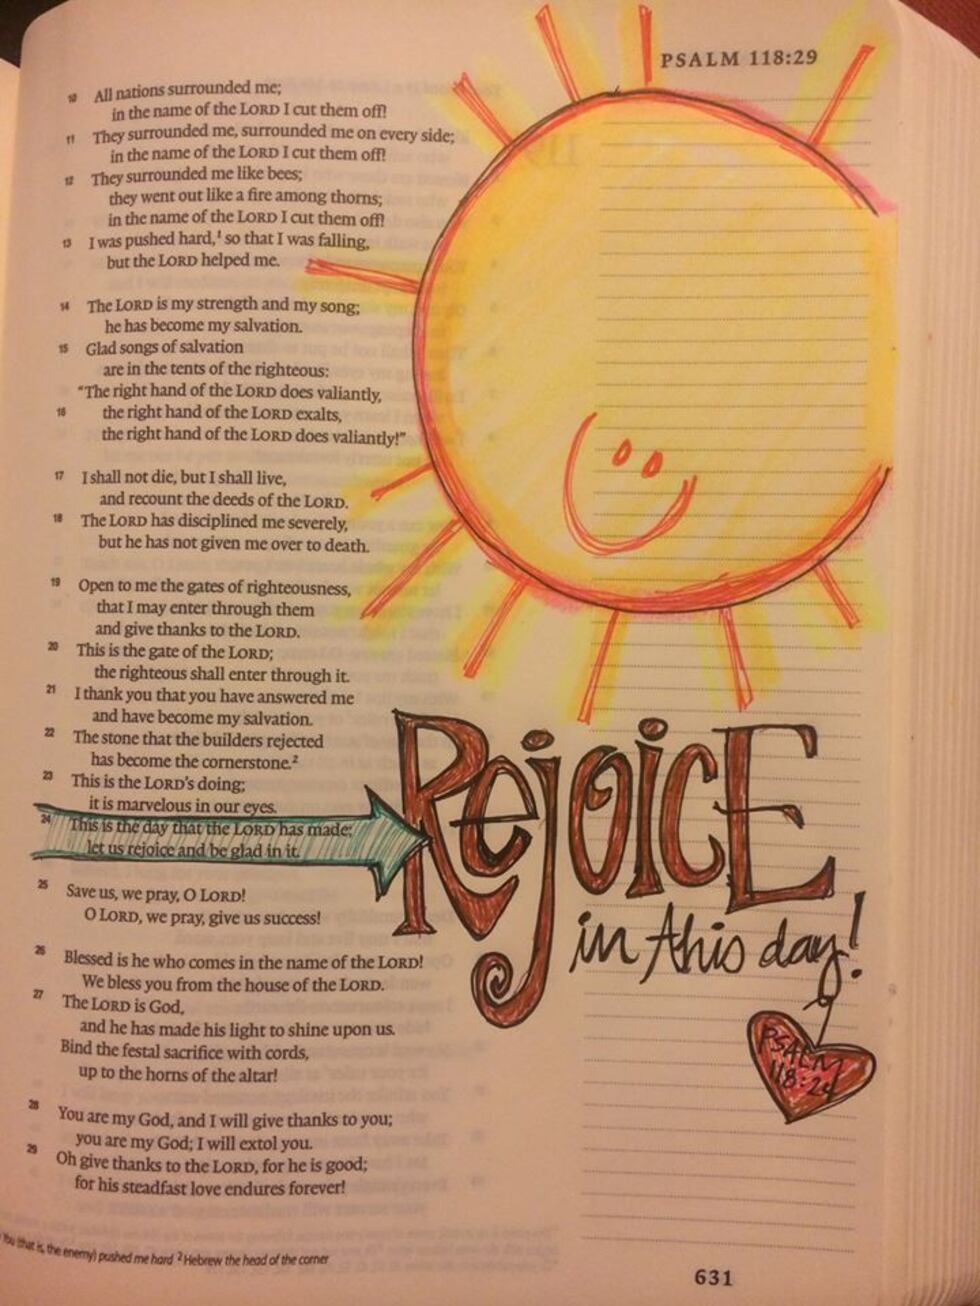 PSALM 118:29
10 All nations surrounded me;
in the name of the LORD I cut them off!
11 They surrounded me, surrounded me on every side;
in the name of the LORD I cut them off!
12 They surrounded me like bees;
they went out like a fire among thorns;
in the name of the LORD I cut them off!
13 I was pushed hard,¹ so that I was falling,
but the LORD helped me.
14 The LORD is my strength and my song;
he has become my salvation.
15 Glad songs of salvation
are in the tents of the righteous:
"The right hand of the LORD does valiantly,
16 the right hand of the LORD exalts,
the right hand of the LORD does valiantly!"
17 I shall not die, but I shall live,
and recount the deeds of the LORD.
18 The LORD has disciplined me severely,
but he has not given me over to death.
19 Open to me the gates of righteousness,
that I may enter through them
and give thanks to the LORD.
20 This is the gate of the LORD;
the righteous shall enter through it.
21 I thank you that you have answered me
and have become my salvation.
22 The stone that the builders rejected
has become the cornerstone.²
23 This is the LORD's doing;
it is marvelous in our eyes.
24 This is the day that the LORD has made;
let us rejoice and be glad in it.
25 Save us, we pray, O LORD!
O LORD, we pray, give us success!
26 Blessed is he who comes in the name of the LORD!
We bless you from the house of the LORD.
27 The LORD is God,
and he has made his light to shine upon us.
Bind the festal sacrifice with cords,
up to the horns of the altar!
28 You are my God, and I will give thanks to you;
you are my God; I will extol you.
29 Oh give thanks to the LORD, for he is good;
for his steadfast love endures forever!
RejoicE
in this day!
PSALM
118:24
You (that is, the enemy) pushed me hard ² Hebrew the head of the corner
631